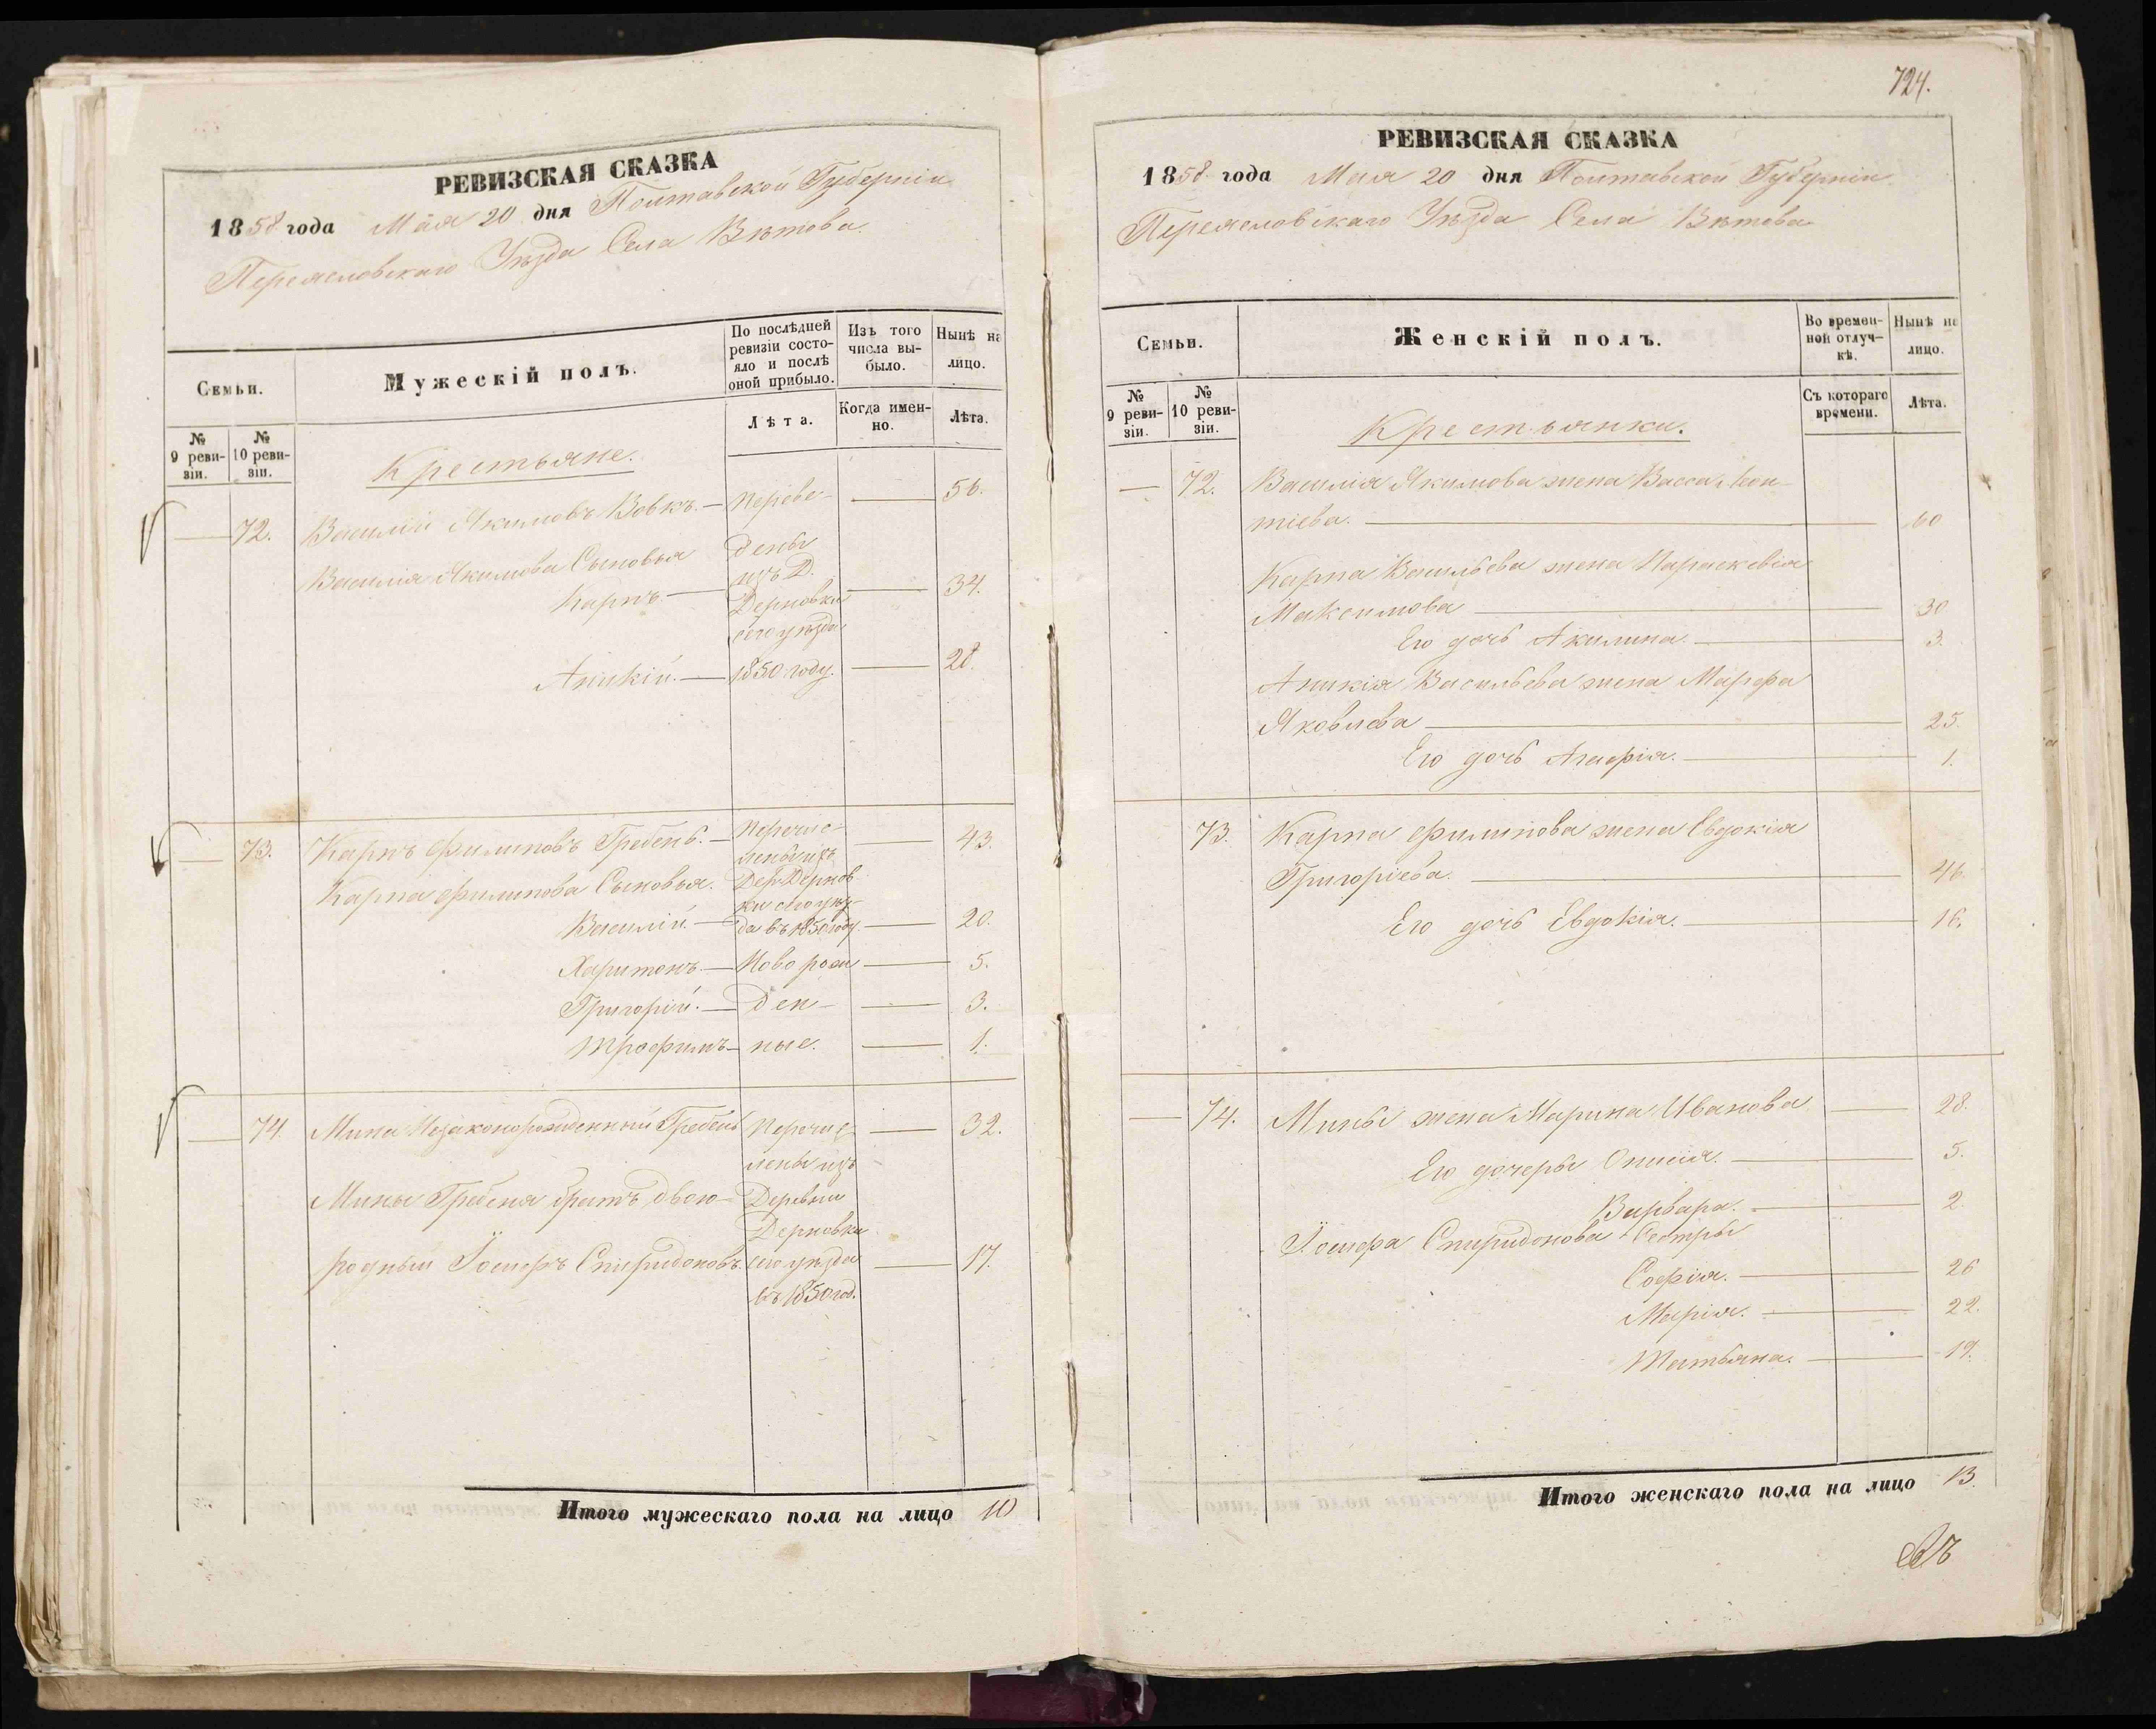 РЕВИЗСКАЯ СКАЗКА
1858 года Мая 20 дня Полтавской Губерніи
Переяславскаго Уѣзда Села Вѣтова.
Семьи.
Мужескій полъ.
По послѣдней ревизіи состояло и послѣ оной прибыло.
Изъ того числа выбыло.
Нынѣ на лицо.
№ 9 ревизіи.
№ 10 ревизіи.
Лѣта.
Когда именно.
Лѣта.
Крестьяне.
72. Василій Якимовъ Вовкъ. — Переве- — 56.
Василія Якимова Сыновья дены
изъ Д.
Карпъ — Дерновки — 34.
сего уѣзда
Аникій. — 1850 году. — 28.
73. Карпъ Филиповъ Гребень. — Перечис- — 43.
лены изъ
Карпа Филипова Сыновья. Дер. Дернов
ки сего уѣз-
Василій. — да въ 1850 году — 20.
Харитонъ. — Новорож — 5.
Григорій. — ден- — 3.
Трофимъ — ные. — 1.
74. Мина Незаконорожденный Гребень Перечис — 32.
лены изъ
Мины Гребеня братъ двою- Деревни
Дерновки
родный Іосифъ Спиридоновъ. сего уѣзда — 17.
въ 1850 год.
Итого мужескаго пола на лицо 10
724.
РЕВИЗСКАЯ СКАЗКА
1858 года Мая 20 дня Полтавской Губерніи
Переяславскаго Уѣзда Села Вѣтова
Семьи.
Женскій полъ.
Во временной отлучкѣ.
Нынѣ на лицо.
№ 9 ревизіи.
№ 10 ревизіи.
Съ котораго времени.
Лѣта.
Крестьянки.
— 72. Василія Якимова жена Васса Леон-
тіева. — 60
Карпа Васильева жена Параскевія
Максимова — 30
Его дочь Акилина. — 3.
Аникія Васильева жена Марфа
Яковлева — 25.
Его дочь Агафія. — 1.
73. Карпа Филипова жена Евдокія
Григоріева. — 46.
Его дочь Евдокія. — 16.
— 74. Мины жена Марина Иванова — 28.
Его дочеры Онисія. — 5.
Варвара. — 2.
Іосифа Спиридонова Сестры
Софія. — 26
Марія. — 22.
Татьяна. — 19.
Итого женскаго пола на лицо 13.